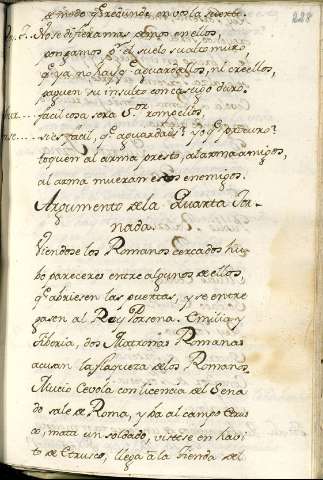 228
de modo qe redunde en vos la suerte.
No se difiera mas demos en ellos,
pongamos qe el suelo su alto muro,
qe ya no hay qe aguardallos, ni creellos,
paguen su insulto con castigo duro.
facil cosa será Sor rompellos,
si es facil, qe aguardais? yo qe procuro?
toquen al arma presto, al arma amigos,
al arma mueran estos enemigos.
Argumento de la Quarta Jor-
nada.
Viendose los Romanos cercados hu-
bo pareceres entre algunos de ellos,
qe abriesen las puertas, y se entre
gasen al Rey Porsena. Emilia y
Tiberia, dos Matronas Romanas
acusan la flaqueza de los Romanos
Mucio Cevola con licencia del Sena
do sale de Roma, y va al campo Etrus
co, mata un soldado, vistese en habi
to de Etrusco, llega á la tienda del